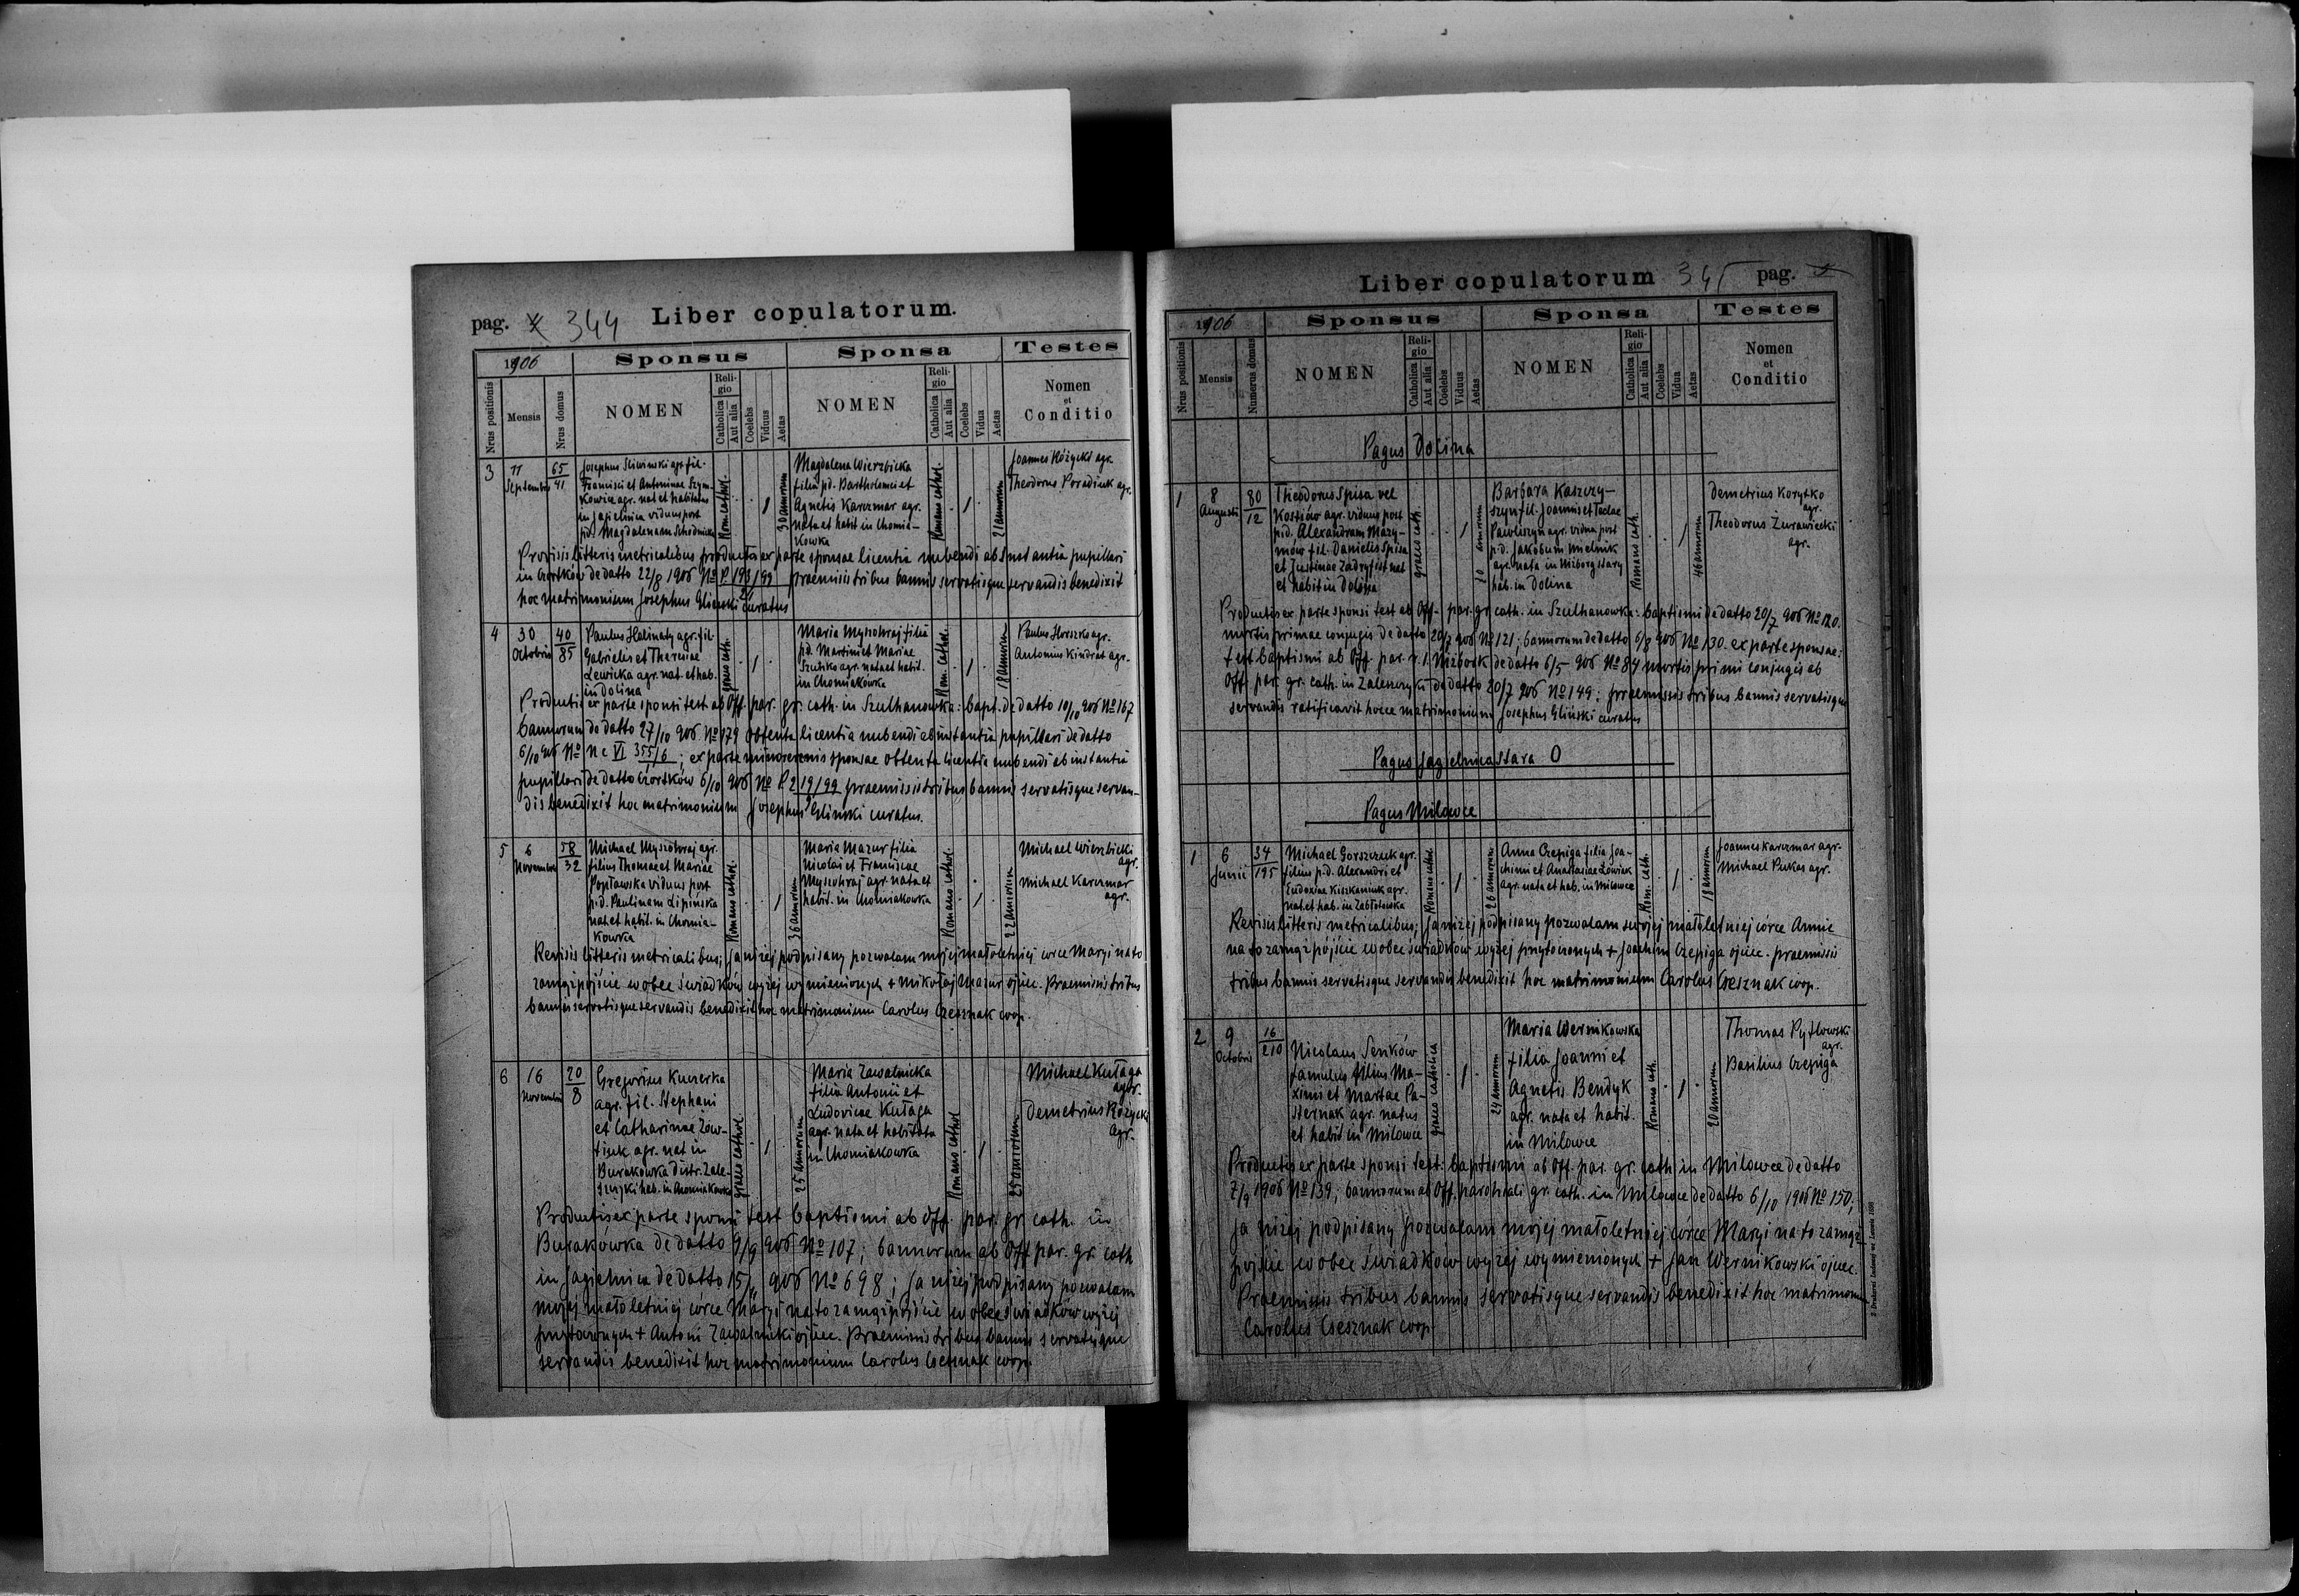 pag. 344 Liber copulatorum.
1906
Sponsus
Sponsa
Testes
Nrus positionis
Mensis
Nrus domus
NOMEN
Reli-
gio
Catholica
Aut alia
Coelebs
Viduus
Aetas
NOMEN
Reli-
gio
Catholica
Aut alia
Coelebs
Vidua
Aetas
Nomen
et
Conditio
3
11
Septembris
65
41
Josephus Sliwinski agr. fil.
Francisci et Antoninae Szym-
kowicz agr. nat et habitatus
in Jagielnica viduus post
p.d. Magdalenam
Rom. cathol.
1
30 annorum
Magdalena Wierzbicka
filia p.d. Bartholomei et
Agnetis Karczmar agr.
nata et habit in Chomia-
kowka
Romano cathol.
1
21 annorum
Joannes Różycki agr.
Theodorus Poradiuk agr.
Provisis litteris metricalibus productis ex parte sponsae licentia nubendi ab Instantia pupillari
in Czortków de datto 22/8 1906 No P 193/99 praemissis tribus bannis servatisque servandis benedixit
hoc matrimonium Josephus Gliński curatus
4
30
Octobris
40
85
Paulus Halinaty agr. fil.
Gabrielis et Theresiae
Lewicka agr. nat. et hab.
in Dolina
graeco cath.
1
Maria Myszohraj filia
p.d. Martini et Mariae
Szutko agr. nata et habit.
in Chomiakówka
Rom. cathol.
1
18 annorum
Paulus Horszko agr.
Antonius Kindrat agr.
Productis ex parte sponsi test. ab Off. par. gr. cath. in Szulhanowka: bapt. de datto 10/10 906 No 167
bannorum de datto 27/10 906 No 179 obtenta licentia nubendi ab instantia pupillari de datto
6/10 906 No Nc VI 355/6; ex parte minorennis sponsae obtenta licentia nubendi ab instantia
pupillari de datto Czortków 6/10 906 No P. 219/99 praemissis tribus bannis servatisque servan-
dis benedixit hoc matrimonium Josephus Gliński curatus.
5
6
Novembris
58
32
Michael Myszohraj agr.
filius Thomae et Mariae
Popławska viduus post
p.d. Paulinam Lipińska
nat. et habit. in Chomia-
kowka
Romano cathol.
1
36 annorum
Maria Mazur filia
Nicolai et Franciscae
Myszohraj agr. nata et
habit. in Chomiakowka
Romano cathol.
1
22 annorum
Michael Wierzbicki
agr.
Michael Karczmar
agr.
Revisis litteris metricalibus; Ja niżej podpisany pozwalam mojej małoletniej córce Maryi na to
zamążpójście wobec świadków wyżej wymienionych + Mikołaj Mazur ojciec. Praemissis tribus
bannis servatisque servandis benedixit hoc matrimonium Carolus Czesznak coop.
6
16
Novembris
20
8
Gregorius Kucserka
agr. fil. Stephani
et Catharinae Low-
tiuk agr. nat in
Burakowka distr. Zale-
szczyki hab. in Chomiakowka
graeco cathol.
1
25 annorum
Maria Zawalnicka
filia Antonii et
Ludovicae Kułaga
agr. nata et habitata
in Chomiakowka
Romano cathol
1
25 annorum
Michael Kułaga
agr.
Demetrius Różycki
agr.
Productis ex parte sponsi test baptismi ab Off. par. gr. cath. in
Burakówka de datto 9/9 906 No 107; bannorum ab Off par. gr. cath
in Jagielnica de datto 15/11 906 No 698; Ja niżej podpisany pozwalam
mojej małoletniej córce Maryi na to zamążpójście wobec świadków wyżej
przytoczonych + Antoni Zawalnicki ojciec. Praemissis tribus bannis servatisque
servandis benedixit hoc matrimonium Carolus Czesznak coop.
Liber copulatorum 345 pag.
1906
Sponsus
Sponsa
Testes
Nrus positionis
Mensis
Numerus domus
NOMEN
Reli-
gio
Catholica
Aut alia
Coelebs
Viduus
Aetas
NOMEN
Reli-
gio
Catholica
Aut alia
Coelebs
Vidua
Aetas
Nomen
et
Conditio
Pagus Dolina
1
8
Augusti
80
12
Theodorus Spisa vel
Kostiów agr. viduus post
p.d. Alexandram Mazy-
mów fil. Danielis Spisa
et Justinae Zadryjist nat
et habit in Dolina
graeco cath.
1
annorum
Barbara Kaszczy-
szyn fil. Joannis et Teclae
Pawliszyn agr. vidua post
p.d. Jakóbum Mielnik
agr. nata in Niżborg stary
hab. in Dolina
Romano cath.
1
46 annorum
Demetrius Korytko
agr.
Theodorus Żurawiecki
agr.
Productis ex parte sponsi test ab Off. par. gr. cath. in Szulhanowka: baptismi de datto 20/7 906 No 120.
mortis primae conjugis de datto 20/7 906 No 121; bannorum de datto 6/8 906 No 130. ex parte sponsae:
test baptismi ab Off. par. r. l. Niżbork de datto 6/5 906 No 84 mortis primi conjugis ab
Off. par. gr. cath. in Zaleszczyki de datto 20/7 906 No 149: praemissis tribus bannis servatisque
servandis ratificavit hocce matrimonium Josephus Gliński curatus
Pagus Jagielnica Stara 0
Pagus Milowce
1
6
Junii
34
195
Michael Gorszczuk agr.
filius p.d. Alexandri et
Eudoxiae Kiszkaniuk agr.
nat. et hab. in Zabłotowka
Romano cathol.
1
26 annorum
Anna Czepiga filia Joa-
chimi et Anastasiae Łowiak
agr. nata et hab. in Milowce
Rom. cath.
1
18 annorum
Joannes Karczmar agr.
Michael Pukas agr.
Revisis litteris metricalibus; Ja niżej podpisany pozwalam swojej małoletniej córce Annie
na to zamążpójście wobec świadków wyżej przytoczonych + Joachim Czepiga ojciec. praemissis
tribus bannis servatisque servandis benedixit hoc matrimonium Carolus Czesznak coop.
2
9
Octobris
16
210
Nicolaus Senków
famulus filius Ma-
ximi et Martae Pa-
sternak agr. natus
et habit in Milowce
graeco catholica
1
24 annorum
Maria Wernikowska
filia Joanni et
Agnetis Bendyk
agr. nata et habit.
in Milowce
Romano cath.
1
20 annorum
Thomas Pytlowski
agr.
Basilius Czepiga
Productis ex parte sponsi test: baptismi ab Off. par. gr. cath. in Milowce de datto
7/9 1906 No 139; bannorum ab Off. parochiali gr. cath. in Milowce de datto 6/10 1906 No 150;
Ja niżej podpisany pozwalam mojej małoletniej córce Maryi na to zamąż-
pójście wobec świadków wyżej wymienionych + Jan Wernikowski ojciec.
Praemissis tribus bannis servatisque servandis benedixit hoc matrimonium
Carolus Czesznak coop